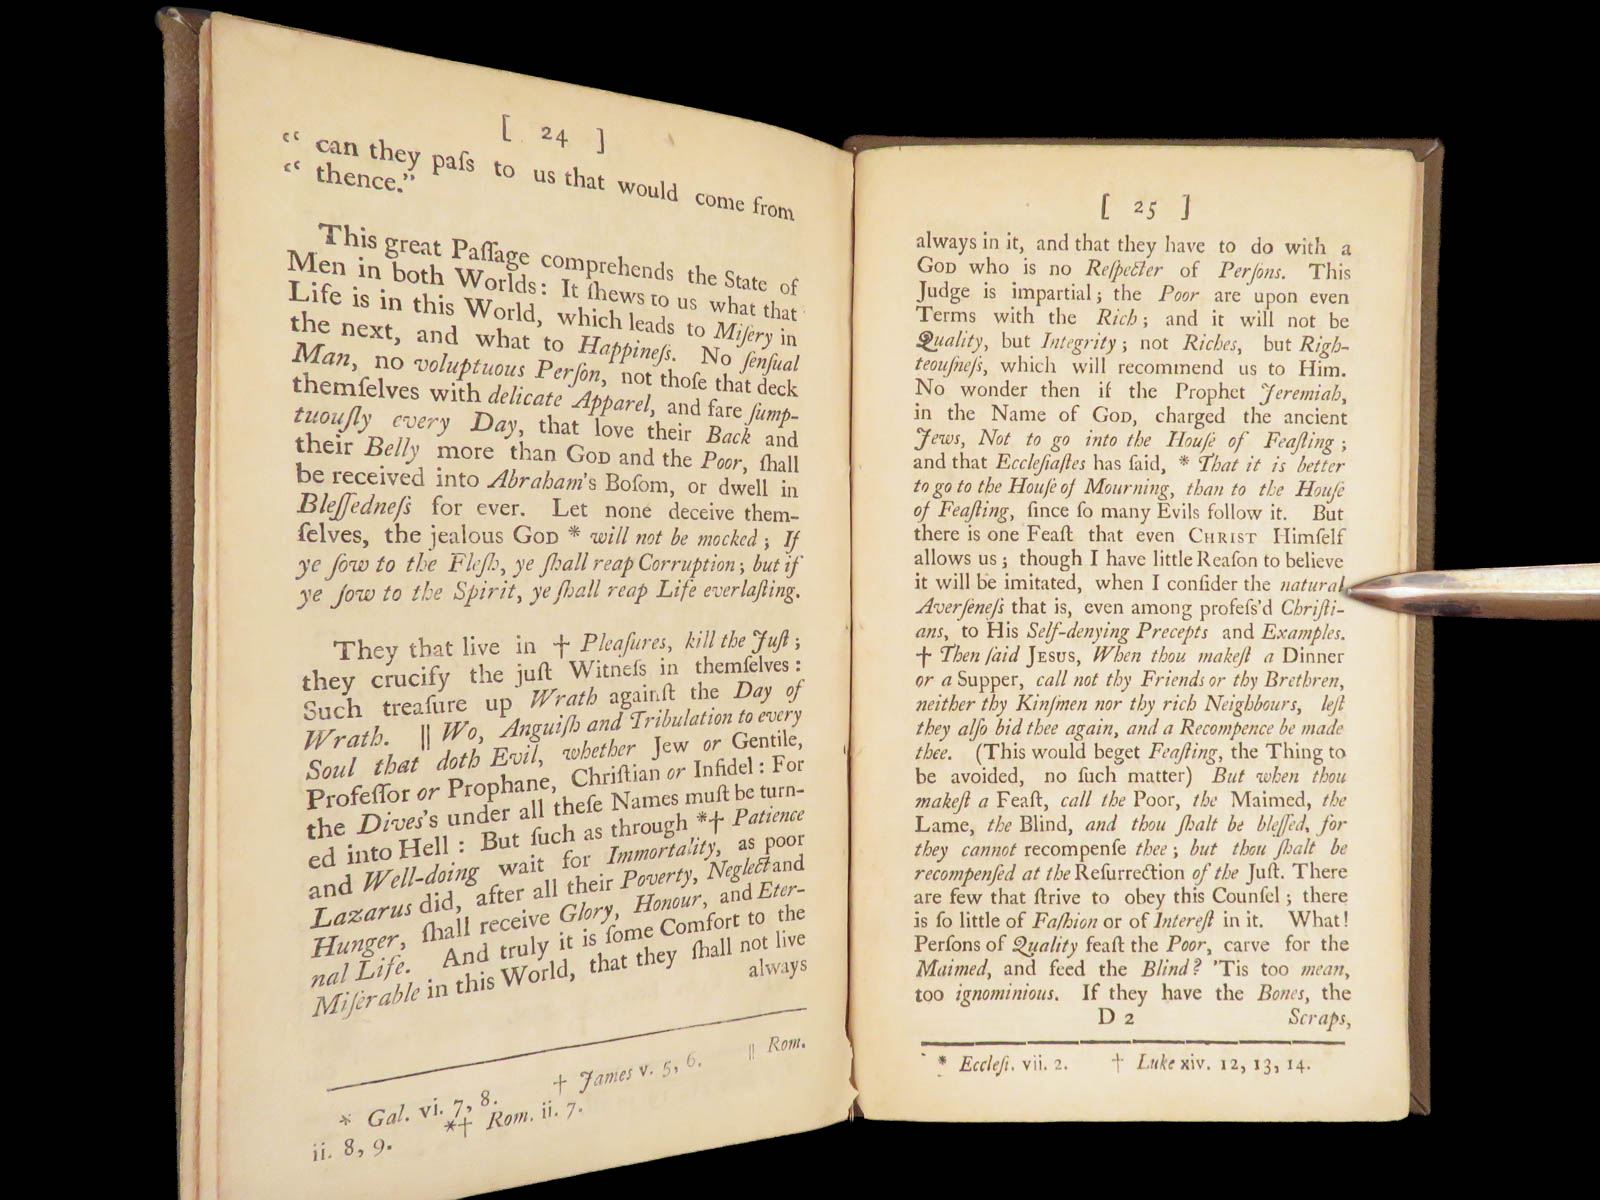 [ 24 ]
“ can they paſs to us that would come from
“ thence.”
This great Paſſage comprehends the State of
Men in both Worlds: It ſhews to us what that
Life is in this World, which leads to Miſery in
the next, and what to Happineſs. No ſenſual
Man, no voluptuous Perſon, not thoſe that deck
themſelves with delicate Apparel, and fare ſump-
tuouſly every Day, that love their Back and
their Belly more than GOD and the Poor, ſhall
be received into Abraham's Boſom, or dwell in
Bleſſedneſs for ever. Let none deceive them-
ſelves, the jealous GOD * will not be mocked; If
ye ſow to the Fleſh, ye ſhall reap Corruption; but if
ye ſow to the Spirit, ye ſhall reap Life everlaſting.
They that live in † Pleaſures, kill the Juſt;
they crucify the juſt Witneſs in themſelves:
Such treaſure up Wrath againſt the Day of
Wrath. || Wo, Anguiſh and Tribulation to every
Soul that doth Evil, whether Jew or Gentile,
Profeſſor or Prophane, Chriſtian or Infidel: For
the Dives's under all theſe Names muſt be turn-
ed into Hell: But ſuch as through *† Patience
and Well-doing wait for Immortality, as poor
Lazarus did, after all their Poverty, Neglect and
Hunger, ſhall receive Glory, Honour, and Eter-
nal Life. And truly it is ſome Comfort to the
Miſerable in this World, that they ſhall not live
always
* Gal. vi. 7, 8. † James v. 5, 6. || Rom.
ii. 8, 9. *† Rom. ii. 7.
[ 25 ]
always in it, and that they have to do with a
GOD who is no Reſpecter of Perſons. This
Judge is impartial; the Poor are upon even
Terms with the Rich; and it will not be
Quality, but Integrity; not Riches, but Righ-
teouſneſs, which will recommend us to Him.
No wonder then if the Prophet Jeremiah,
in the Name of GOD, charged the ancient
Jews, Not to go into the Houſe of Feaſting;
and that Eccleſiaſtes has ſaid, * That it is better
to go to the Houſe of Mourning, than to the Houſe
of Feaſting, ſince ſo many Evils follow it. But
there is one Feaſt that even CHRIST Himſelf
allows us; though I have little Reaſon to believe
it will be imitated, when I conſider the natural
Averſeneſs that is, even among profeſs'd Chriſti-
ans, to His Self-denying Precepts and Examples.
† Then ſaid JESUS, When thou makeſt a Dinner
or a Supper, call not thy Friends or thy Brethren,
neither thy Kinſmen nor thy rich Neighbours, leſt
they alſo bid thee again, and a Recompence be made
thee. (This would beget Feaſting, the Thing to
be avoided, no ſuch matter) But when thou
makeſt a Feaſt, call the Poor, the Maimed, the
Lame, the Blind, and thou ſhalt be bleſſed, for
they cannot recompenſe thee; but thou ſhalt be
recompenſed at the Reſurrection of the Juſt. There
are few that ſtrive to obey this Counſel; there
is ſo little of Faſhion or of Intereſt in it. What!
Perſons of Quality feaſt the Poor, carve for the
Maimed, and feed the Blind? 'Tis too mean,
too ignominious. If they have the Bones, the
D 2 Scraps,
* Eccleſi. vii. 2. † Luke xiv. 12, 13, 14.